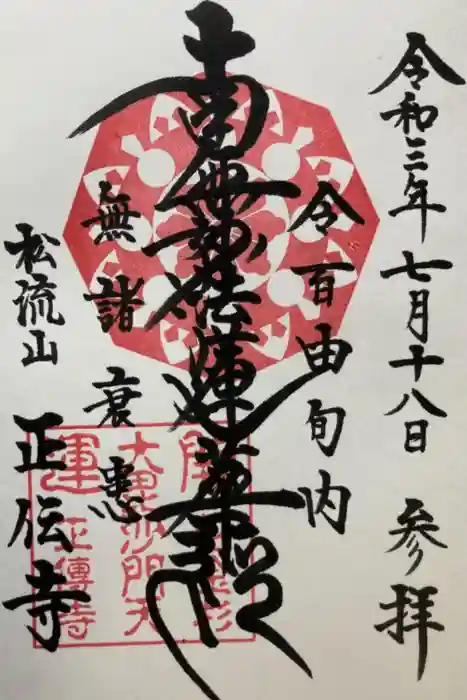 令和三年七月十八日 参拝
令百由旬内
南無妙法蓮華経
無諸衰患
松流山
正伝寺
開運
大毘沙門天
正傳寺